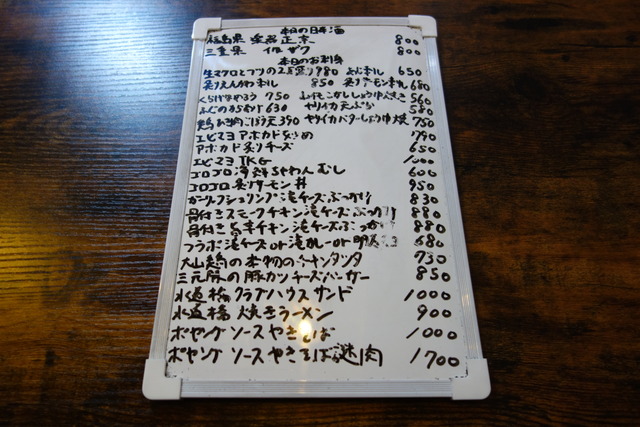 本日の日本酒
福島県 正宗 800
三重県 作 ザク 800
本日のお刺身
生マグロとブリの2点盛り980 刺し 650
炙りえんがわ刺し 850 炙りサーモン刺し 680
くらげなめろう 750 しょうゆ焼き 560
ふぐのから揚げ 630 ヤリイカ天ぷら 580
鶏ごぼう天390 ヤリイカバターしょうゆ焼 750
エビマヨアボカド炒め 790
アボカド炙りチーズ 650
エビマヨTKG 1000
ゴロゴロ海鮮ちゃわんむし 600
ゴロゴロ炙りサーモン丼 950
ガーリックシュリンプ滝チーズぶっかけ 830
骨付きスモークチキン滝チーズぶっかけ 880
骨付き旨辛チキン滝チーズぶっかけ 880
フラポ滝チーズor滝カレーor明太 680
大山鶏の本物のチキンタツタ 730
三元豚の豚カツチーズバーガー 850
水道橋クラブハウスサンド 1000
水道橋 焼きラーメン 900
ポヤング ソースやきそば 1000
ポヤング ソースやきそば謎肉 1700